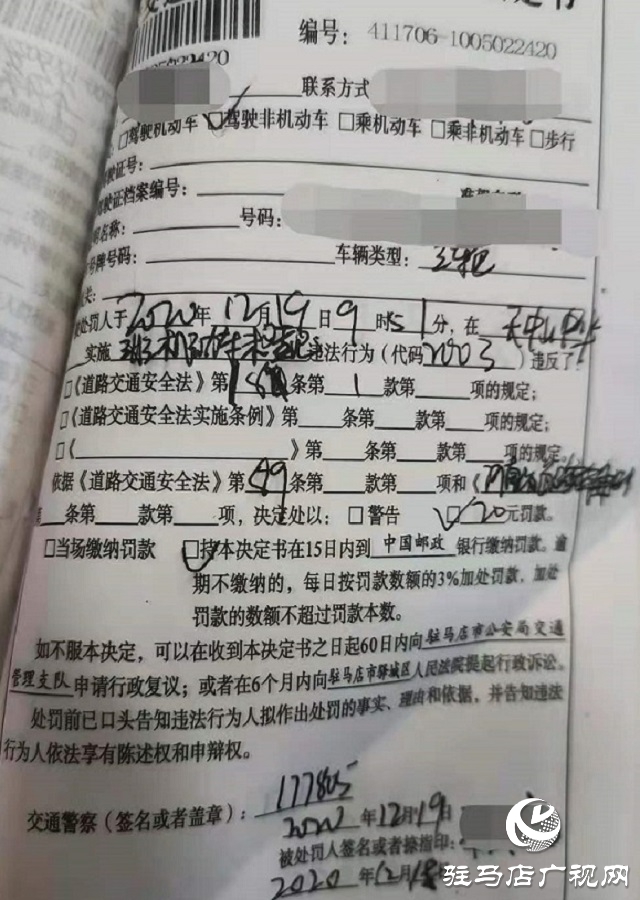 编号：411706-1005022420
5022420
联系方式
驾驶机动车 ☑驾驶非机动车 □乘机动车 □乘非机动车 □步行
驾驶证号：
驶证档案编号：
名称： 号码：
号牌号码： 车辆类型：
被处罚人于2020年12月19日9时51分，在
实施 违法行为（代码2003）违反了：
□《道路交通安全法》第 条第1款第 项的规定；
□《道路交通安全法实施条例》第 条第 款第 项的规定；
□《 》第 条第 款第 项的规定。
依据《道路交通安全法》第89条第 款第 项和《
第 条第 款第 项，决定处以：□警告 ☑20元罚款。
□当场缴纳罚款 ☑持本决定书在15日内到 中国邮政 银行缴纳罚款。逾
期不缴纳的，每日按罚款数额的3%加处罚款，加处
罚款的数额不超过罚款本数。
如不服本决定，可以在收到本决定书之日起60日内向驻马店市公安局交通
管理支队申请行政复议；或者在6个月内向驻马店市驿城区人民法院提起行政诉讼。
处罚前已口头告知违法行为人拟作出处罚的事实、理由和依据，并告知违法
行为人依法享有陈述权和申辩权。
交通警察（签名或者盖章）：
2020年12月19日
被处罚人签名或者捺指印：
2020年12月
驻马店广视网